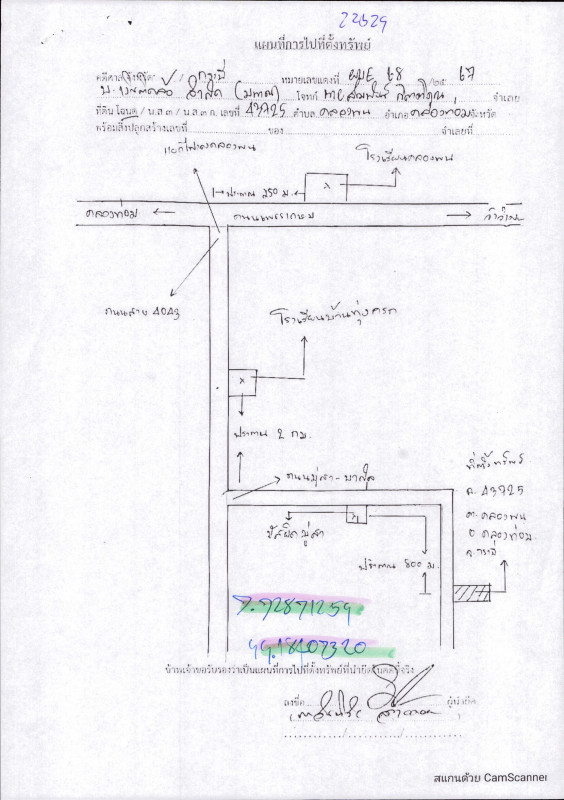 22629
แผนที่การไปที่ตั้งทรัพย์
คดีศาลจังหวัด กระบี่ หมายเลขแดงที่ ผบE 68 /๒๕ 67
จำกัด (มหาชน) โจทก์ นายสมพันธ์ จำเลย
ที่ดิน โฉนด / น.ส.๓ / น.ส.๓ ก. เลขที่ 43925 ตำบล คลองพน อำเภอ คลองท่อม จังหวัด
พร้อมสิ่งปลูกสร้างเลขที่ ของ จำเลยที่
แยกไฟแดงคลองพน
โรงเรียนคลองพน
ประมาณ 250 ม.
x
คลองท่อม
ถนนเพชรเกษม
ถนนสาย 4043
โรงเรียนบ้านทุ่งครก
x
ประมาณ 2 กม.
ที่ตั้งทรัพย์
ฉ. 43925
ต. คลองพน
อ. คลองท่อม
จ. กระบี่
x
ประมาณ 800 ม.
7.92871259
99.18407320
ข้าพเจ้าขอรับรองว่าเป็นแผนที่การไปที่ตั้งทรัพย์ที่นำยึดในคดีนี้จริง
ลงชื่อ ผู้นำยึด
/ /
สแกนด้วย CamScanner